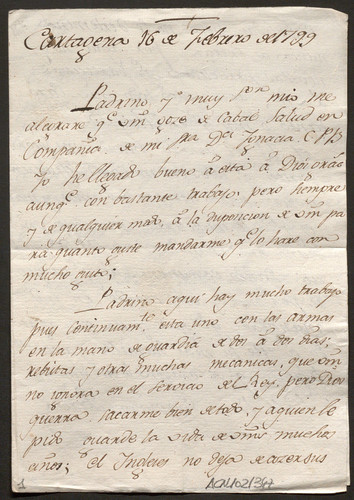 Cartagena 16 de Febrero de 1799
Padrino, y muy sor mio me
alegrare qe vm goze de Cabal Salud en
Compañia de mi sra Da Ignacia C.P.B
Yo he llegado bueno a esta a Dios gras
aunqe con bastante trabajo, pero siempre
y de qualquier modo, a la disposicion de vm pa
ra quanto guste mandarme qe lo hare con
mucho gusto;
Padrino aqui hay mucho trabajo
pues continuamte esta uno con las armas
en la mano de guardia de dos a dos dias;
rebistas y otras muchas mecanicas, que vm
no ignora en el servicio del Rey, pero Dios
querra sacarme bien de todo, y a quien le
pido guarde la vida de vms muchos
años; el Ingles no deja de azer sus